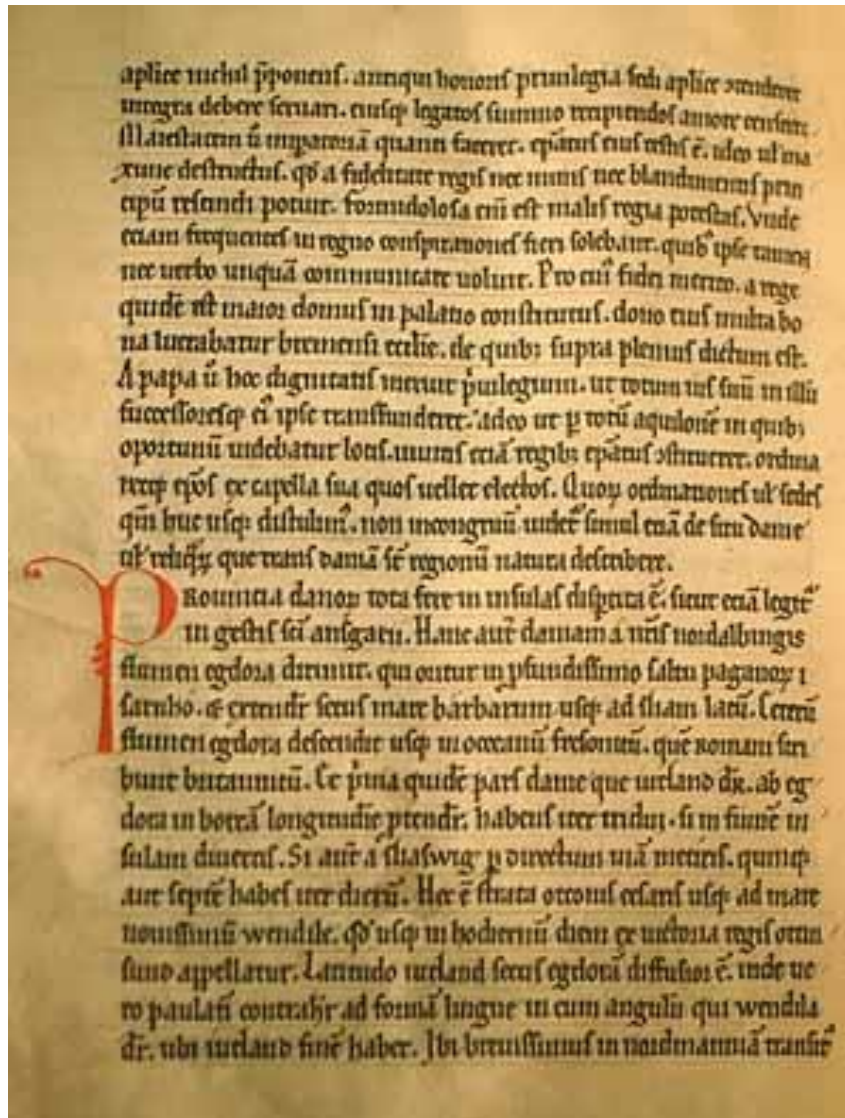 aplice nichil p̄ponens. antiqui honoris priuilegia sedi aplice ɔtenderet
integra debere seruari. eiusq; legatos summo recipiendos amore censuit.
Maiestatem ū imperatoriā quanti faceret. ep̄atus eius testis ē. ideo ul̓ ma
xime destructus. qd̓ a fidelitate regis nec minis nec blandimentis prin
cipū rescindi potuit. formidolosa eni est malis regia potestas. Vnde
etiam frequentes in regno conspirationes fieri solebant. quib; ipse tamen
nec uerbo unquā communicare uoluit. Pro cui᾿ fidei merito. a rege
quidē est maior domus in palatio constitutus. dono eius multa bo
na lucrabatur bremensi ecclīe. de quib; supra plenius dictum est.
A papa ū hoc dignitatis meruit p̓uilegium. ut totum ius suū in illū
successoresq; ei᾿ ipse transfunderet. adeo ut p̱ totū aquilonē in quib;
oportunū uidebatur locis. inuitis etiā regib; ep̄atus ɔstitueret. ordina
retq; ep̄os ex capella sua quos uellet electos. Quoꝝ ordinationes ul̓ sedes
qm̄ huc usq; distulim᾿. non incongruū uidet᾿ simul etiā de situ danie
ul̓ reliq̓ꝝ que trans daniā st̄ regionū natura describere.
Prouintia danoꝝ tota fere in insulas disp̱tita ē. sicut etiā legit᾿
in gestis sc̄i ansgarii. Hanc aut̄ daniam a nr̄is nordalbingis
flumen egdora dirimit. qui oritur in ꝓfundissimo saltu paganoꝝ i
sarnho. & extendit̄ secus mare barbarum usq; ad sliam lacū. Ceterū
flumen egdora descendit usq; in occeanū fresonicū. quē romani scri
bunt britannicū. Et p̓ma quidē pars danie que iutland dr̄. ab eg
dora in boreā longitudīe ꝓtendit̄. habens iter tridui. si in funē in
sulam diuertis. Si aut̄ a sliaswig p̱ directum uiā metiris. quinq;
aut septē habes iter dierū. Hec ē strata ottonis cesaris usq; ad mare
nouissimū wendile. qd̓ usq; in hodiernū diem ex uictoria regis ottin
sund appellatur. Latitudo iutland secus egdorā diffusior ē. inde ue
ro paulati᾿ contrahit̄ ad formā lingue in eum angulū qui wendila
dr̄. ubi iutland finē habet. Ibi breuissimus in nordmanniā transit᾿